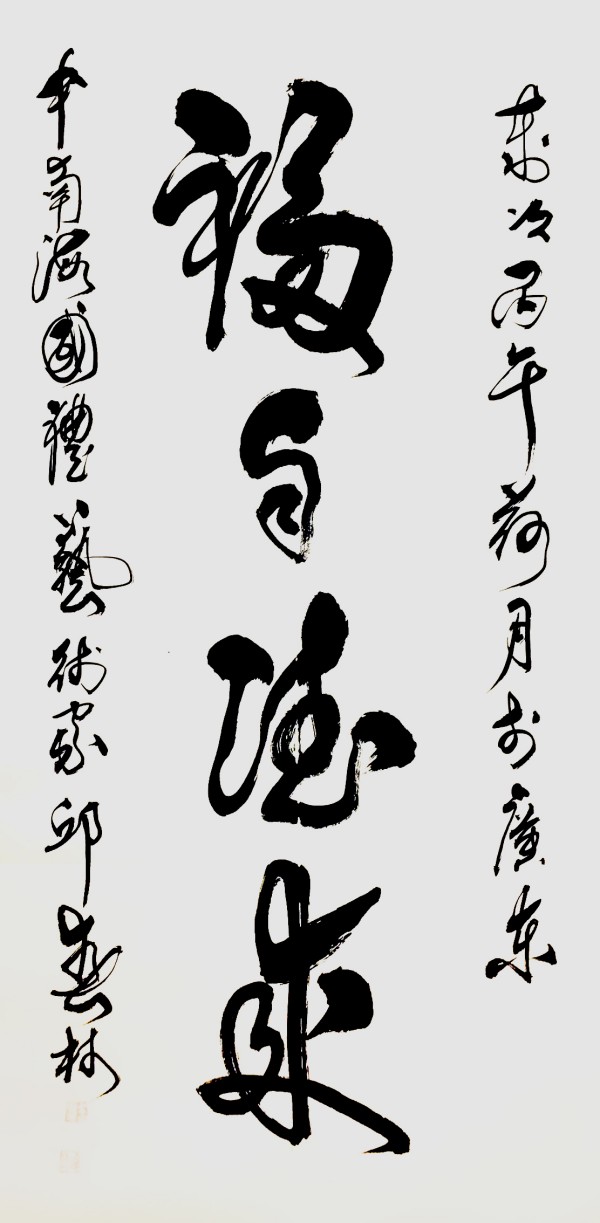 歲次丙午荷月於廣东
福自德來
中南海國禮藝術家邱春林